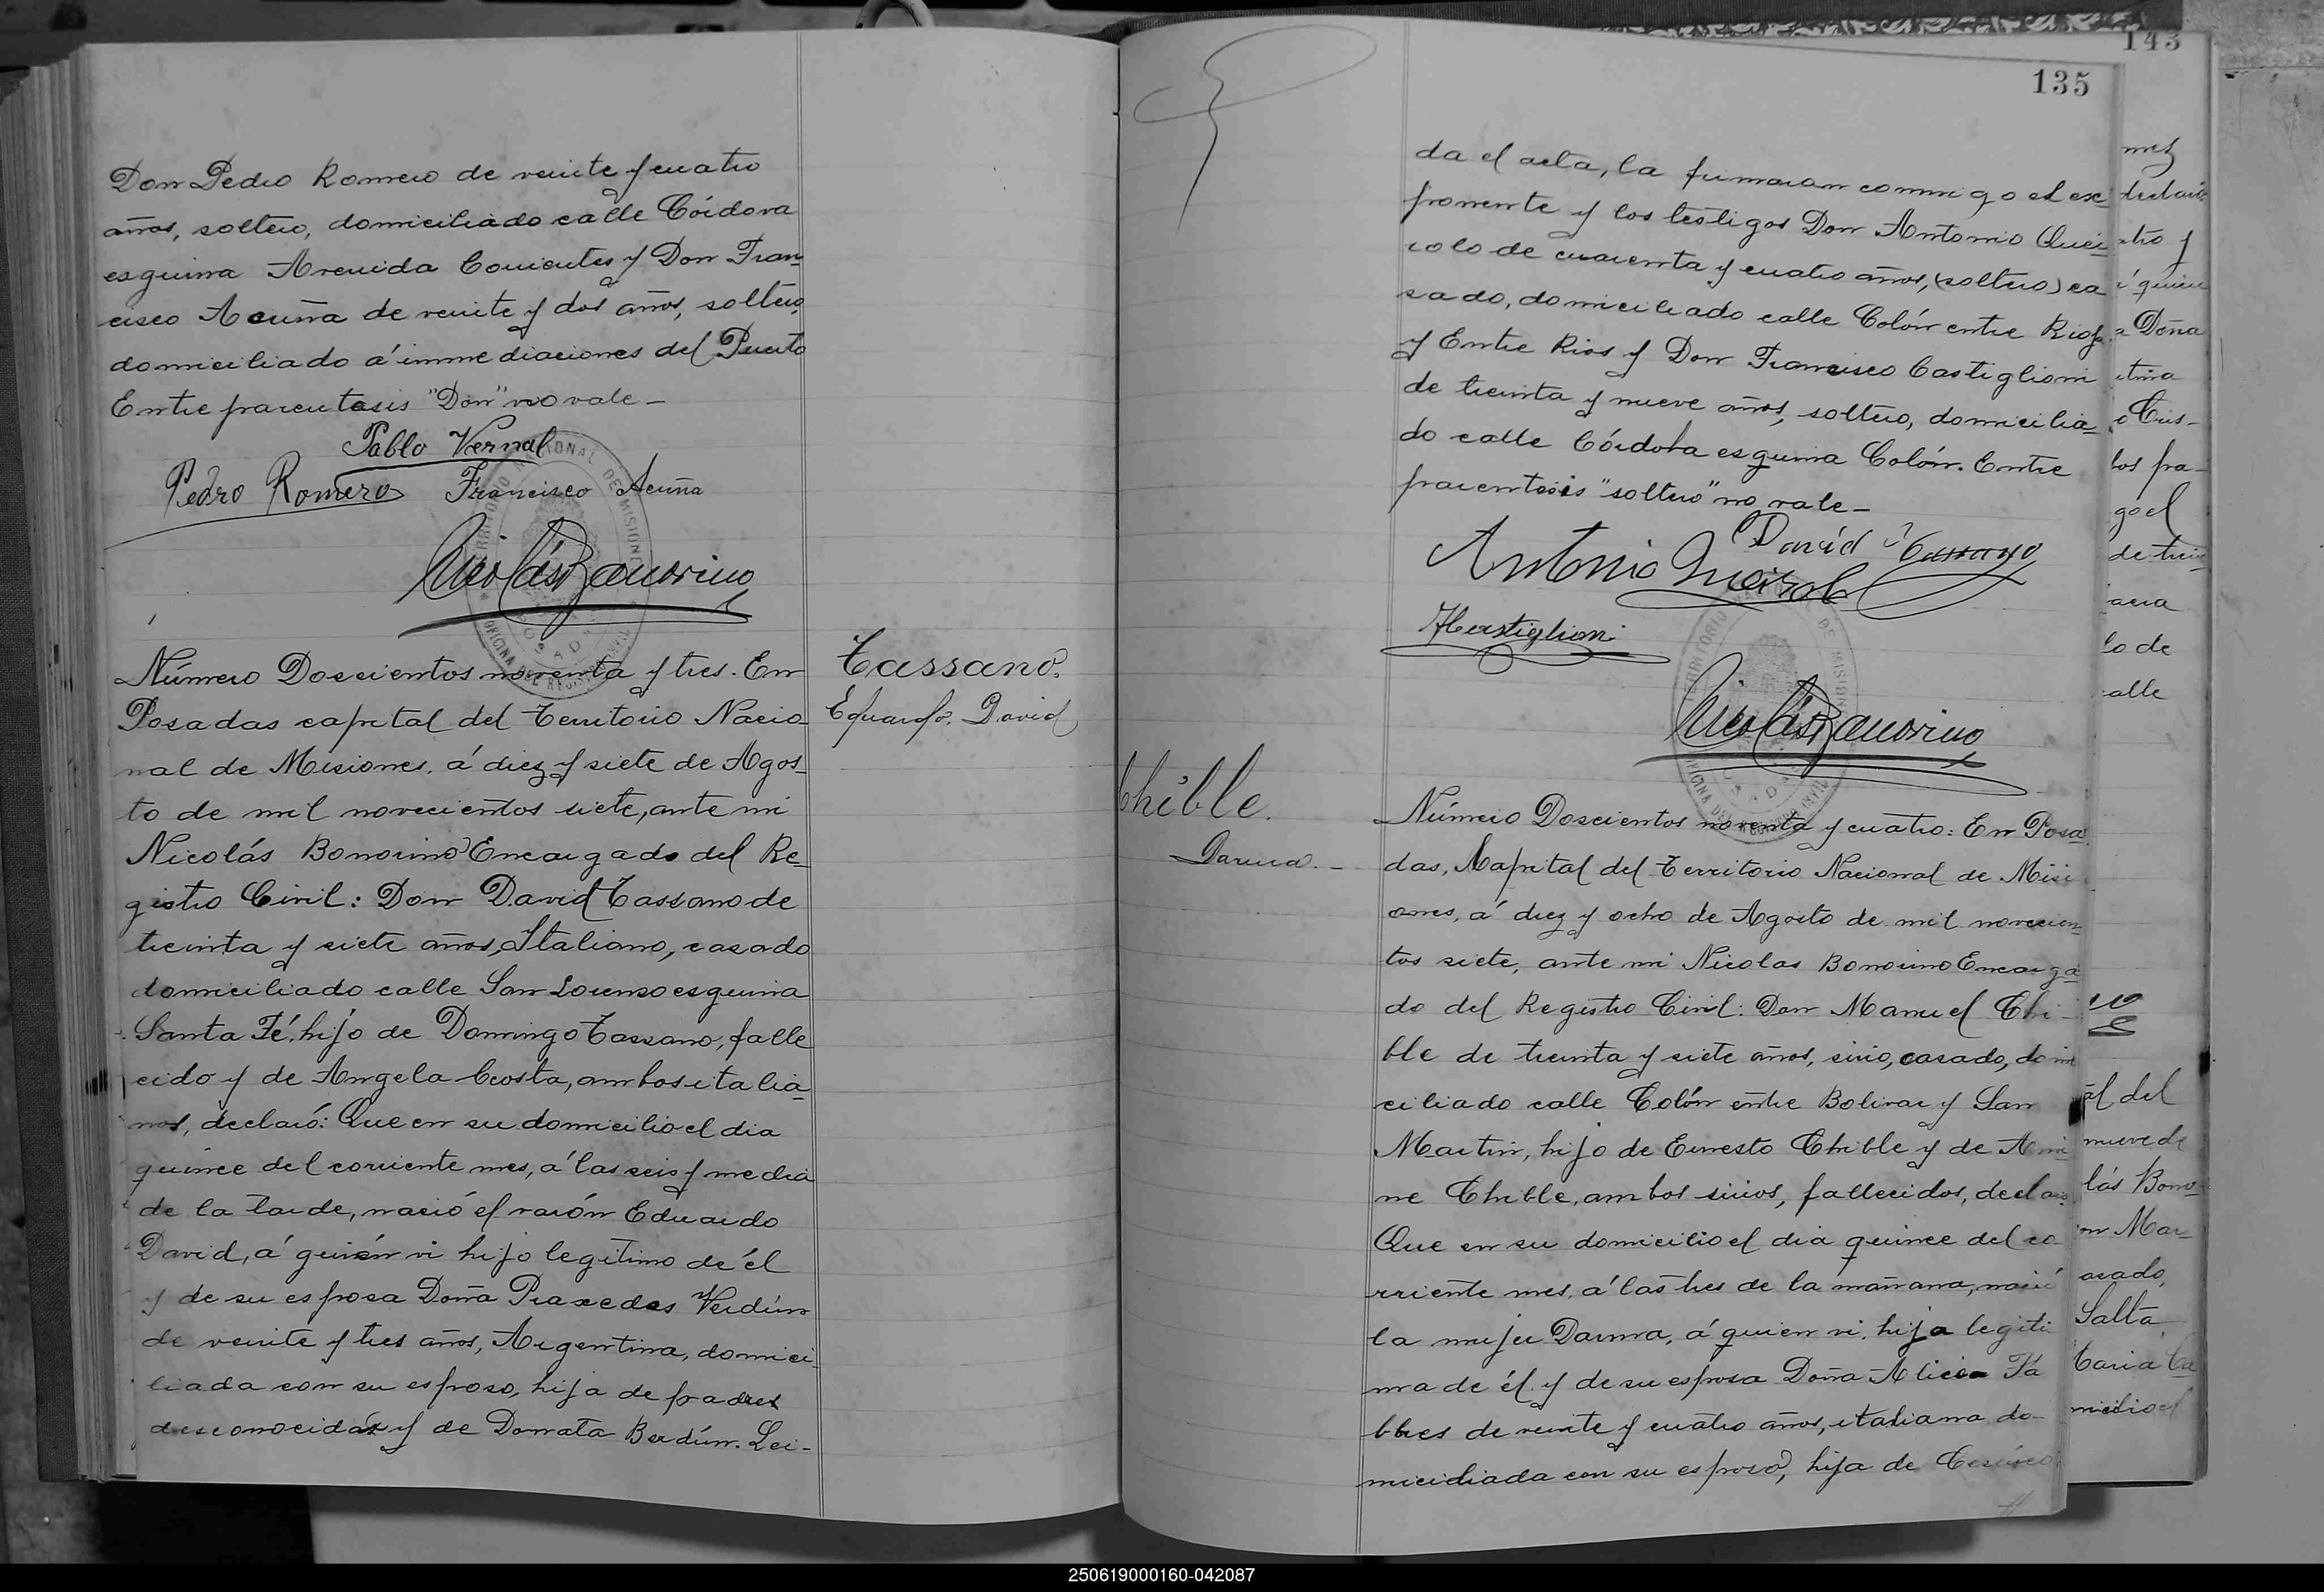 Don Pedro Romero de veinte y cuatro
años, soltero, domiciliado calle Córdova
esquina Avenida Corrientes y Don Fran-
cisco Acuña de veinte y dos años, soltero,
domiciliado á inmediaciones del Puerto
Entre parentasis "Don" no vale-
Pablo Vernal
Pedro Romero Francisco Acuña
Nicolás Bonorino
TERRITORIO NACIONAL DE MISIONES
OFICINA DEL REGISTRO CIVIL
POSADAS
Número Doscientos noventa y tres. En
Posadas capital del Territorio Nacio-
nal de Misiones, á diez y siete de Agos-
to de mil novecientos siete, ante mi
Nicolás Bonorino Encargado del Re-
gistro Civil: Don David Tassano de
treinta y siete años, Italiano, casado
domiciliado calle San Lorenso esquina
Santa Fé, hijo de Domingo Tassano, falle
cido y de Angela Costa, ambos italia-
nos, declaró: Que en su domicilio el dia
quince del corriente mes, á las seis y media
de la tarde, nació el varón Eduardo
David, á quién vi hijo legitimo de él
y de su esposa Doña Praxedes Verdún
de veinte y tres años, Argentina, domici-
liada con su esposo, hija de padres
desconocidos y de Donata Berdún. Lei-
Tassano.
Eduardo. David
135
da el acta, la firmaron conmigo el ex-
ponente y los testigos Don Antonio Quei-
rolo de cuarenta y cuatro años, (soltero) ca
sado, domiciliado calle Colón entre Rioja
y Entre Rios y Don Francisco Castiglioni
de treinta y nueve años, soltero, domicilia-
do calle Córdoba esquina Colón. Entre
parentesis "soltero" no vale-
David Tassano
Antonio Queirolo
FCastiglioni
Nicolás Bonorino
TERRITORIO DE MISIONES
OFICINA DEL REGISTRO CIVIL
POSADAS
Chible.
Darma.-
Número Doscientos noventa y cuatro: En Posa
das, Capital del Territorio Nacional de Misi
ones, á diez y ocho de Agosto de mil novecien-
tos siete, ante mi Nicolas Bonorino Encarga
do del Registro Civil: Don Manuel Chi-
ble de treinta y siete años, sirio, casado, domi
ciliado calle Colón entre Bolivar y San
Martin, hijo de Ernesto Chible y de Ami
ne Chible, ambos sirios, fallecidos, declaró:
Que en su domicilio el dia quince del co-
rriente mes, á las tres de la mañana, nació
la mujer Darma, á quien vi, hija legiti
ma de él y de su esposa Doña Alicia Fa
bbres de veinte y cuatro años, italiana, do-
miciliada con su esposo, hija de
143
mez
atro y
á quien
a Doña
tina
los pa-
go el
lo de
calle
al del
nueve de
lás Bono-
n Mar-
asado,
Salta
Maria
micilio el
250619000160-042087